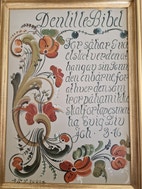 Den lille Bibel
For så har Gud
elsket verden at
han gav sin sønn
den enbårne for
at hver den som
tror på ham ikke
skal fortapes men
ha evig Liv
Joh 3-16